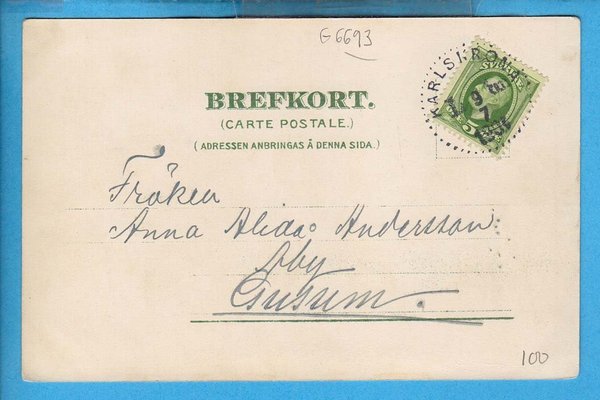 G6693
BREFKORT.
(CARTE POSTALE.)
(ADRESSEN ANBRINGAS Å DENNA SIDA.)
KARLSKRONA
9
7
Fröken
Anna Alida Andersson
Gusum.
100